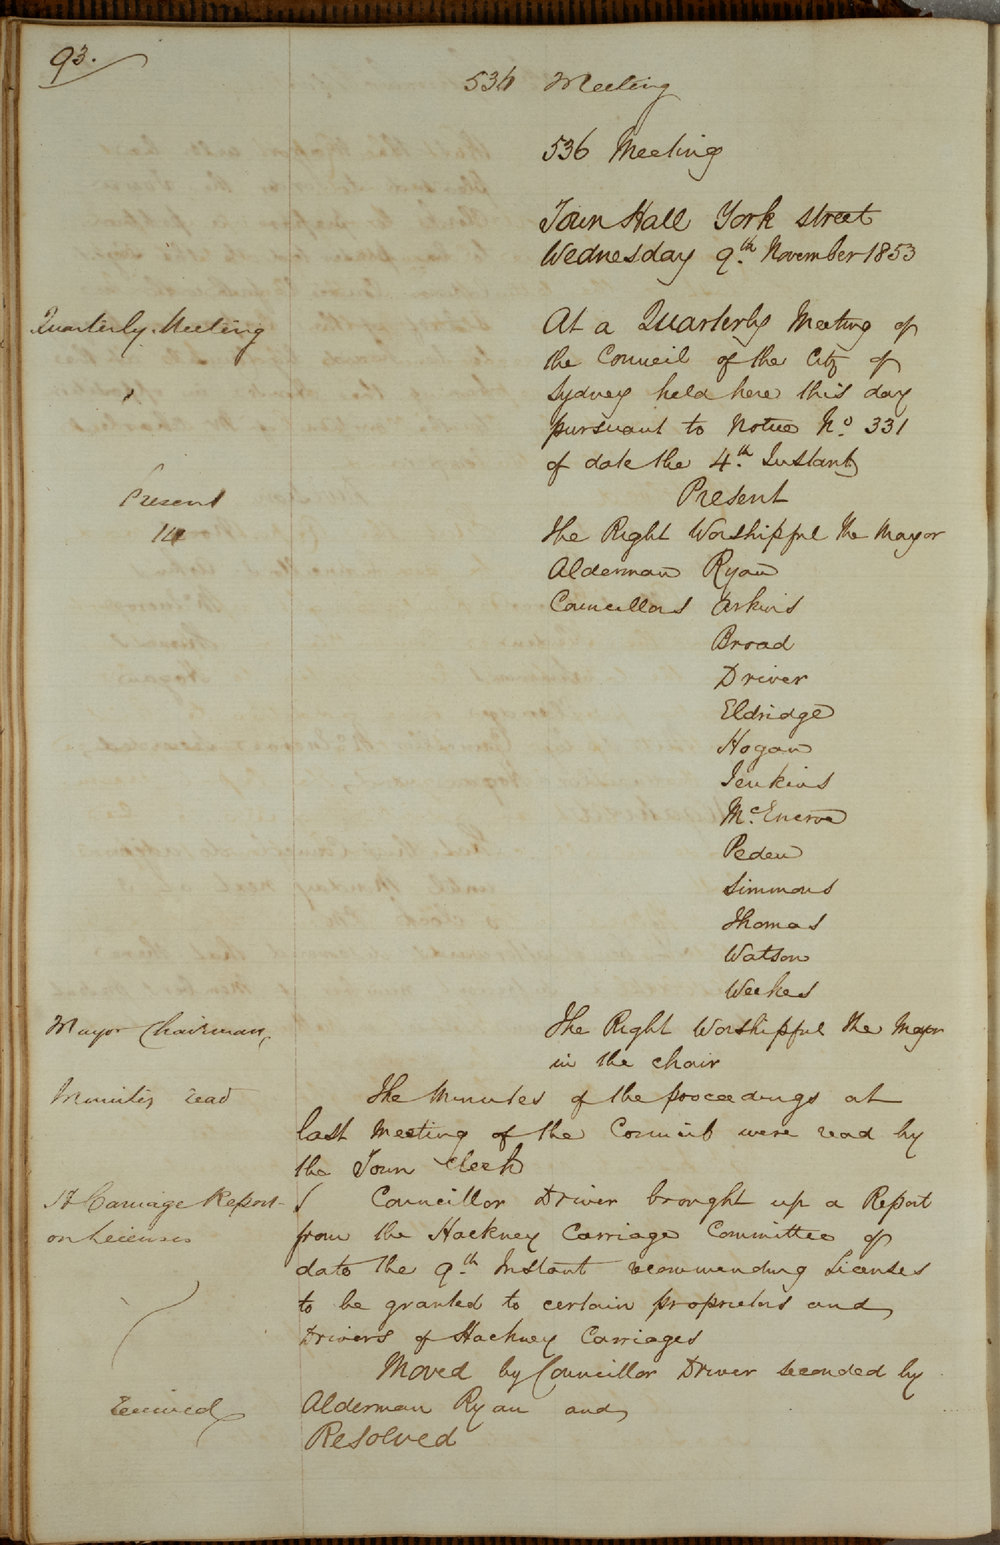 93.
536 Meeting
536 Meeting
Town Hall York street
Wednesday 9.th November 1853
Quarterly Meeting
At a Quarterly Meeting of
the Council of the City of
Sydney held here this day
pursuant to Notice No. 331
of date the 4.th Instant
Present
Present
14
The Right Worshipful the Mayor
Alderman Ryan
Councillors Askins
Broad
Driver
Eldridge
Hogan
Jenkins
McEnroe
Peden
Simmons
Thomas
Watson
Weekes
Mayor Chairman
The Right Worshipful the Mayor
in the chair
Minutes read
The Minutes of the proceedings at
last Meeting of the Council were read by
the Town Clerk
H Carriage Report
on Licenses
Councillor Driver brought up a Report
from the Hackney Carriage Committee of
date the 9.th Instant recommending Licenses
to be granted to certain proprietors and
Drivers of Hackney Carriages
Moved by Councillor Driver seconded by
Received
Alderman Ryan and
Resolved